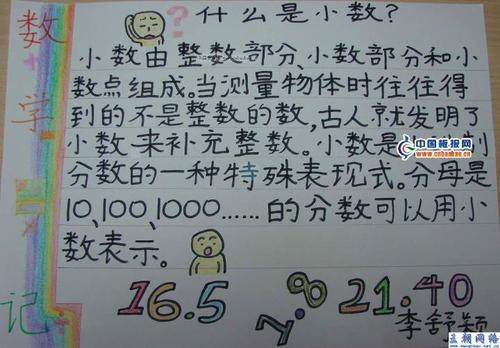 数学
记
什么是小数?
小数由整数部分、小数部分和小
数点组成。当测量物体时往往得
到的不是整数的数,古人就发明了
小数来补充整数。小数是 制
分数的一种特殊表现式。分母是
10,100,1000……的分数可以用小
数表示。
16.5
7.8
21.40
李舒颖
中国板报网
www.cnbanbao.cn